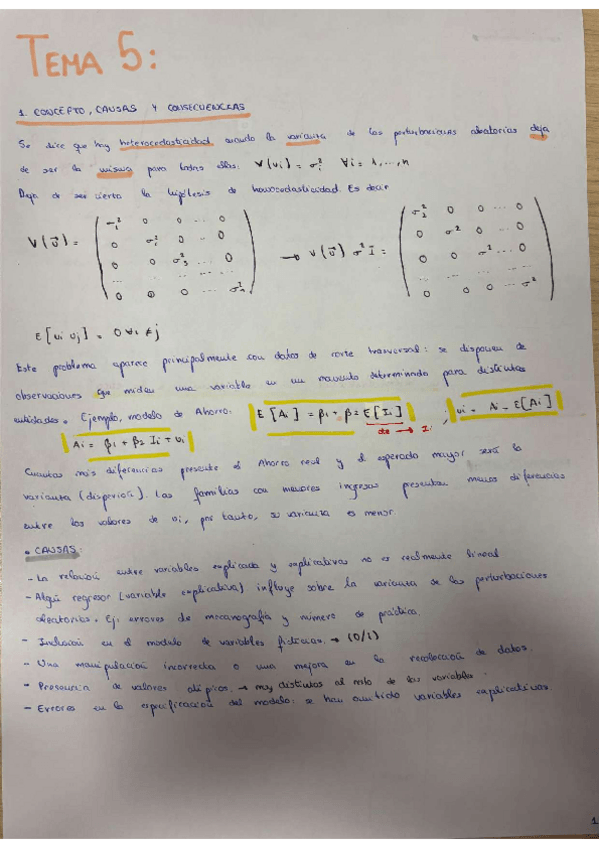 TEMA 5:
1. CONCEPTO, CAUSAS Y CONSECUENCIAS
Se dice que hay heterocedasticidad cuando la varianza de las perturbaciones aleatorias deja
de ser la misma para todas ellas: V(ui) = σi² ∀i = 1,...,n
Deja de ser cierta la hipótesis de homocedasticidad. Es decir
V(ū) = ( σ1² 0 0 ... 0 → V(ū) σ² I = ( σ² 0 0 ... 0
0 σ² 0 ... 0 0 σ² 0 ... 0
0 0 σ3² ... 0 0 0 σ² ... 0
... ... ... ... ... ...
0 0 0 ... σn² ) 0 0 0 ... σ² )
E[ui uj] = 0 ∀i ≠ j
Este problema aparece principalmente con datos de corte trasversal: se disponen de
observaciones que miden una variable en un momento determinado para distintas
entidades. Ejemplo, modelo de Ahorro: E[Ai] = β1 + β2 E[Ii] ; ui = Ai - E[Ai]
cte → Ii
Ai = β1 + β2 Ii + ui
Cuantas más diferencias presente el Ahorro real y el esperado mayor será la
varianza (dispersión). Las familias con menores ingresos presentan menos diferencias
entre los valores de ui, por tanto, su varianza es menor
• CAUSAS:
- La relación entre variables explicada y explicativas no es realmente lineal
- Algún regresor [variable explicativa] influye sobre la varianza de las perturbaciones
aleatorias. Ej. errores de mecanografía y número de práctica.
- Inclusión en el modelo de variables ficticias. → (0/1)
- Una manipulación incorrecta o una mejora en la recolección de datos.
- Presencia de valores atípicos. → muy distintos al resto de las variables
- Errores en la especificación del modelo: se han omitido variables explicativas.
1